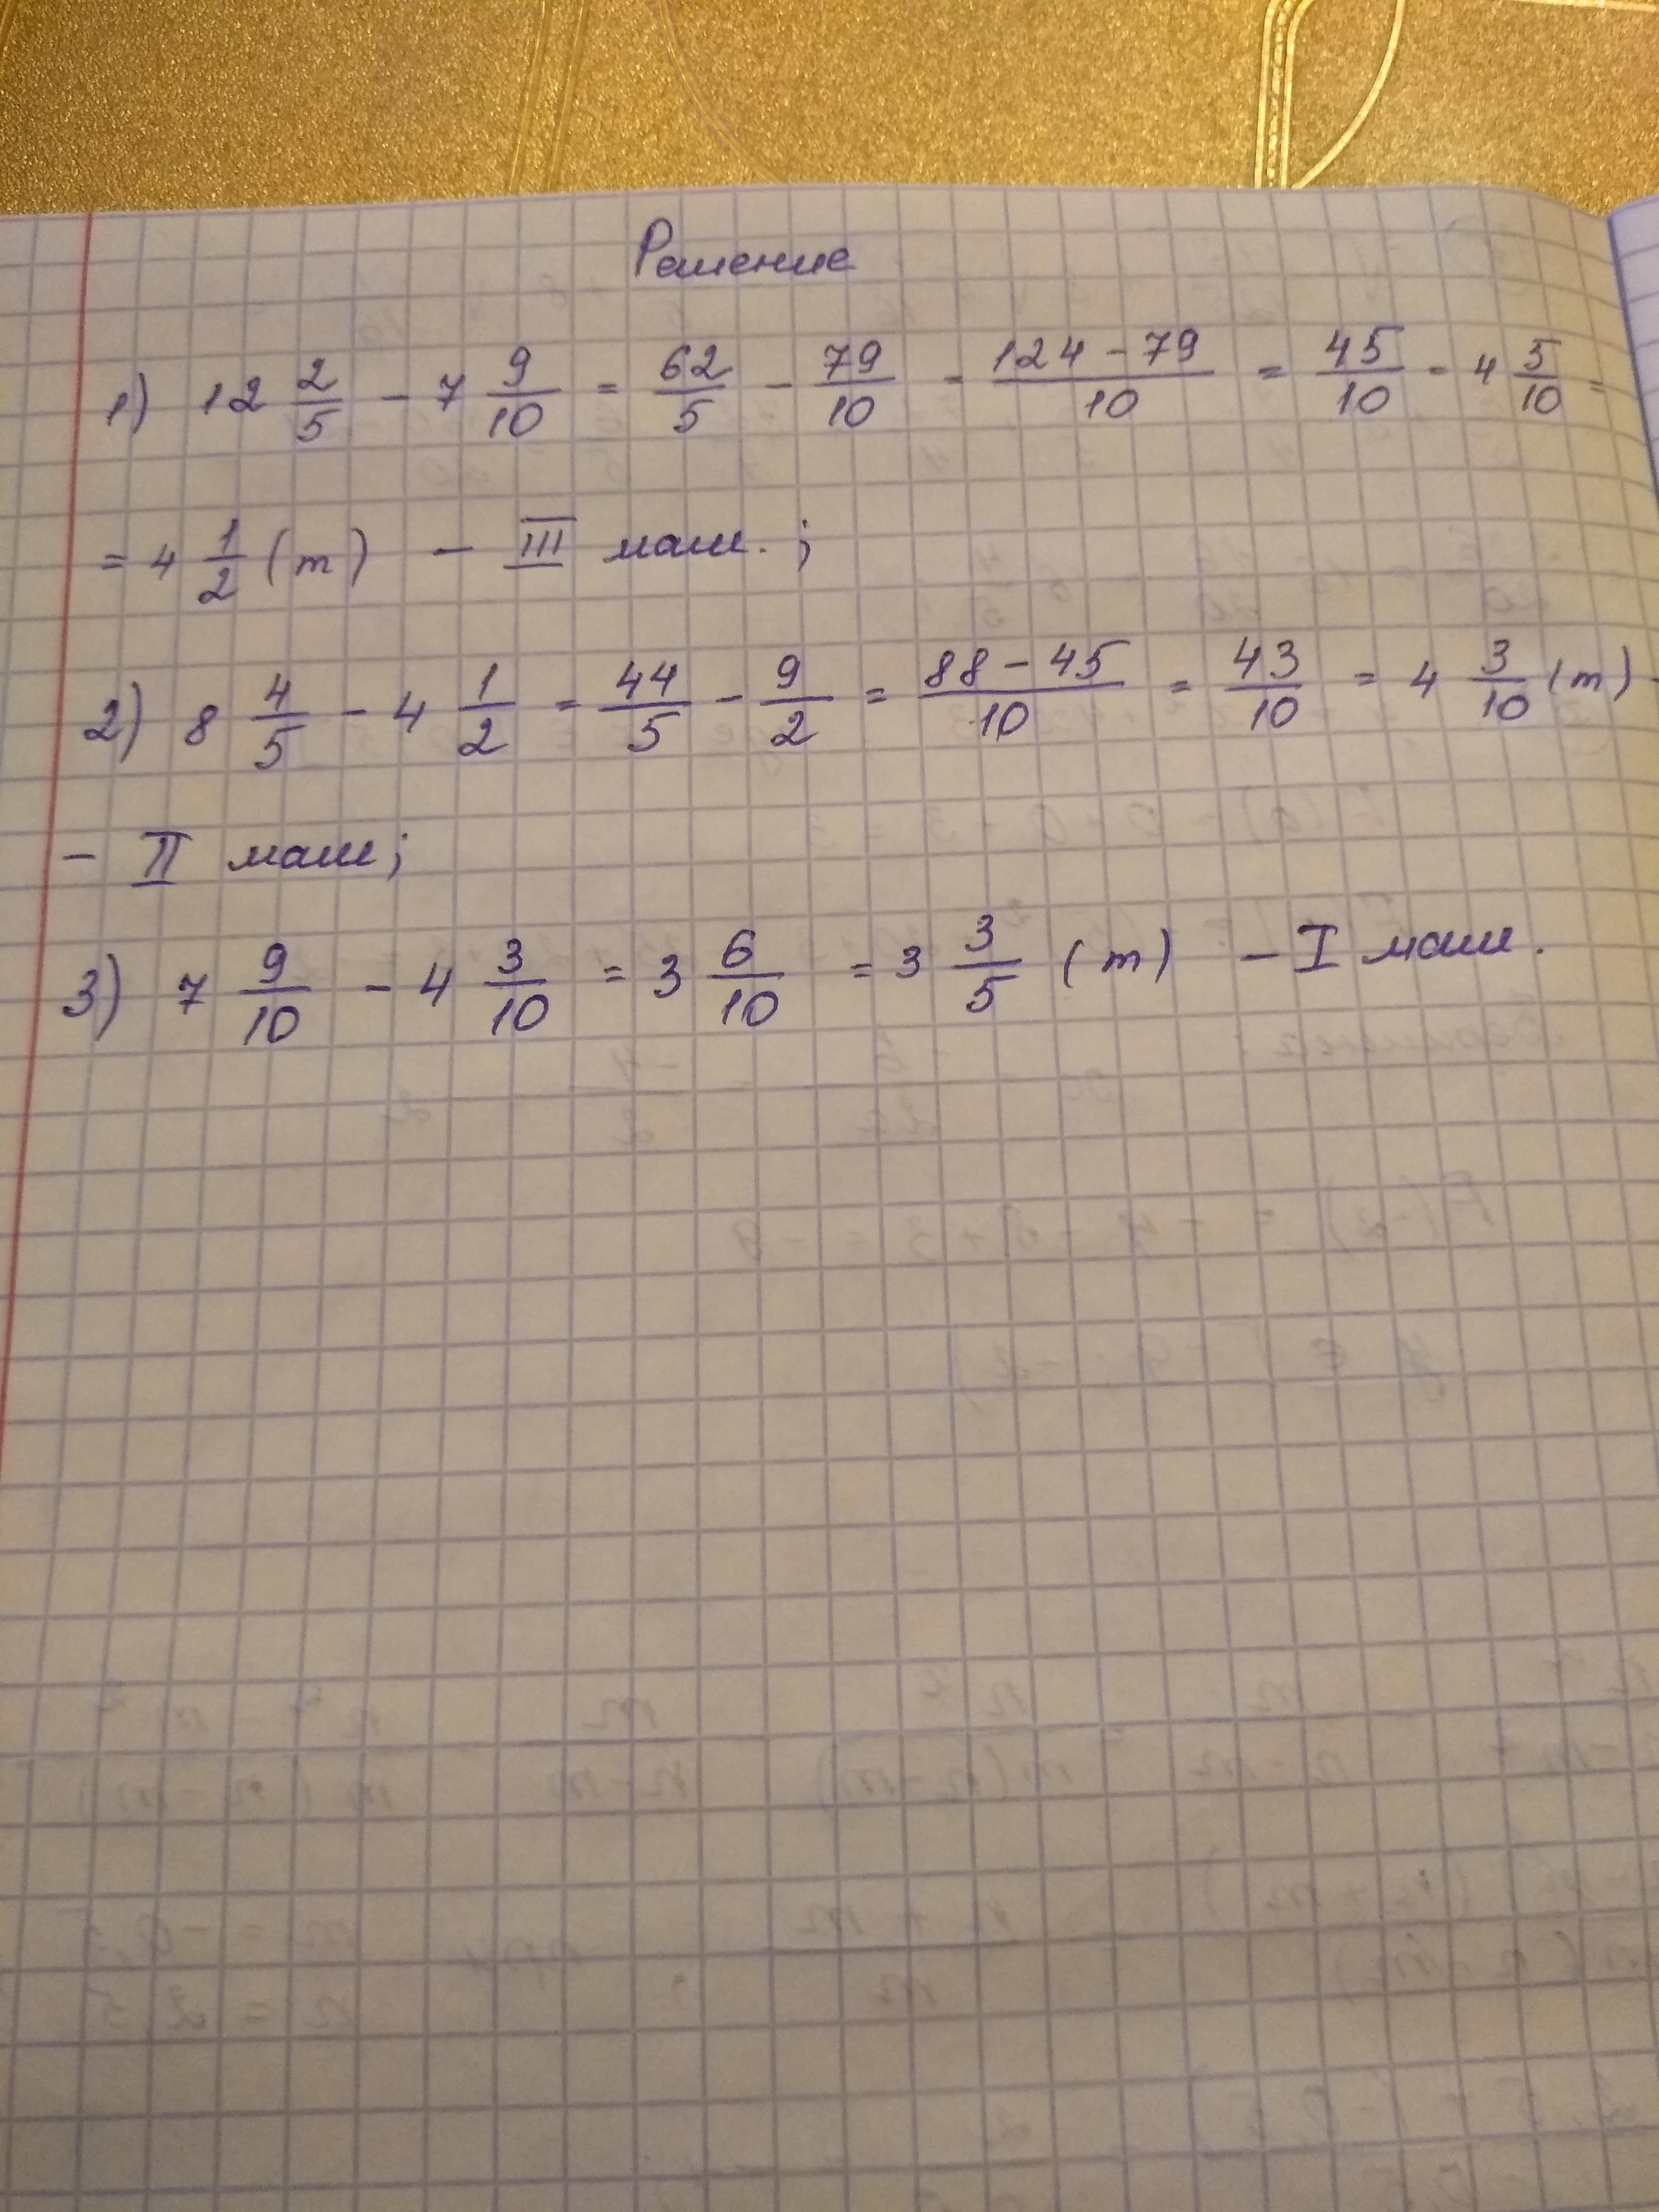 Решение
1) 12 2/5 - 7 9/10 = 62/5 - 79/10 = (124 - 79)/10 = 45/10 = 4 5/10 =
= 4 1/2 (т) - III маш.;
2) 8 4/5 - 4 1/2 = 44/5 - 9/2 = (88 - 45)/10 = 43/10 = 4 3/10 (т) -
- II маш;
3) 7 9/10 - 4 3/10 = 3 6/10 = 3 3/5 (т) - I маш.